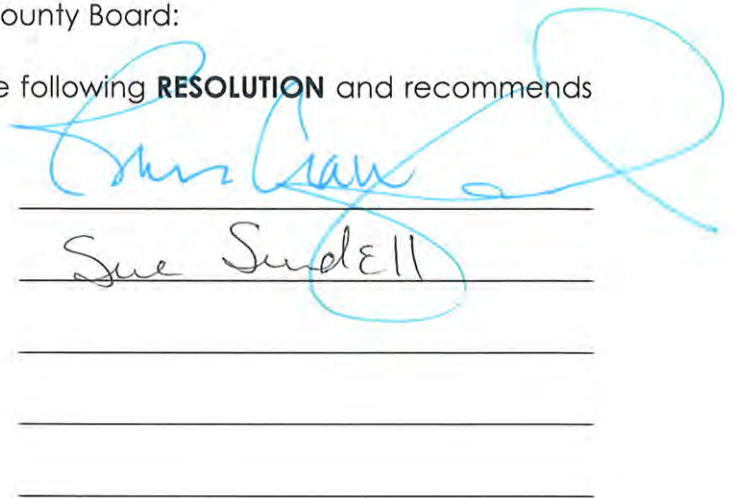 ounty Board:
e following RESOLUTION and recommends
Sue Sundell